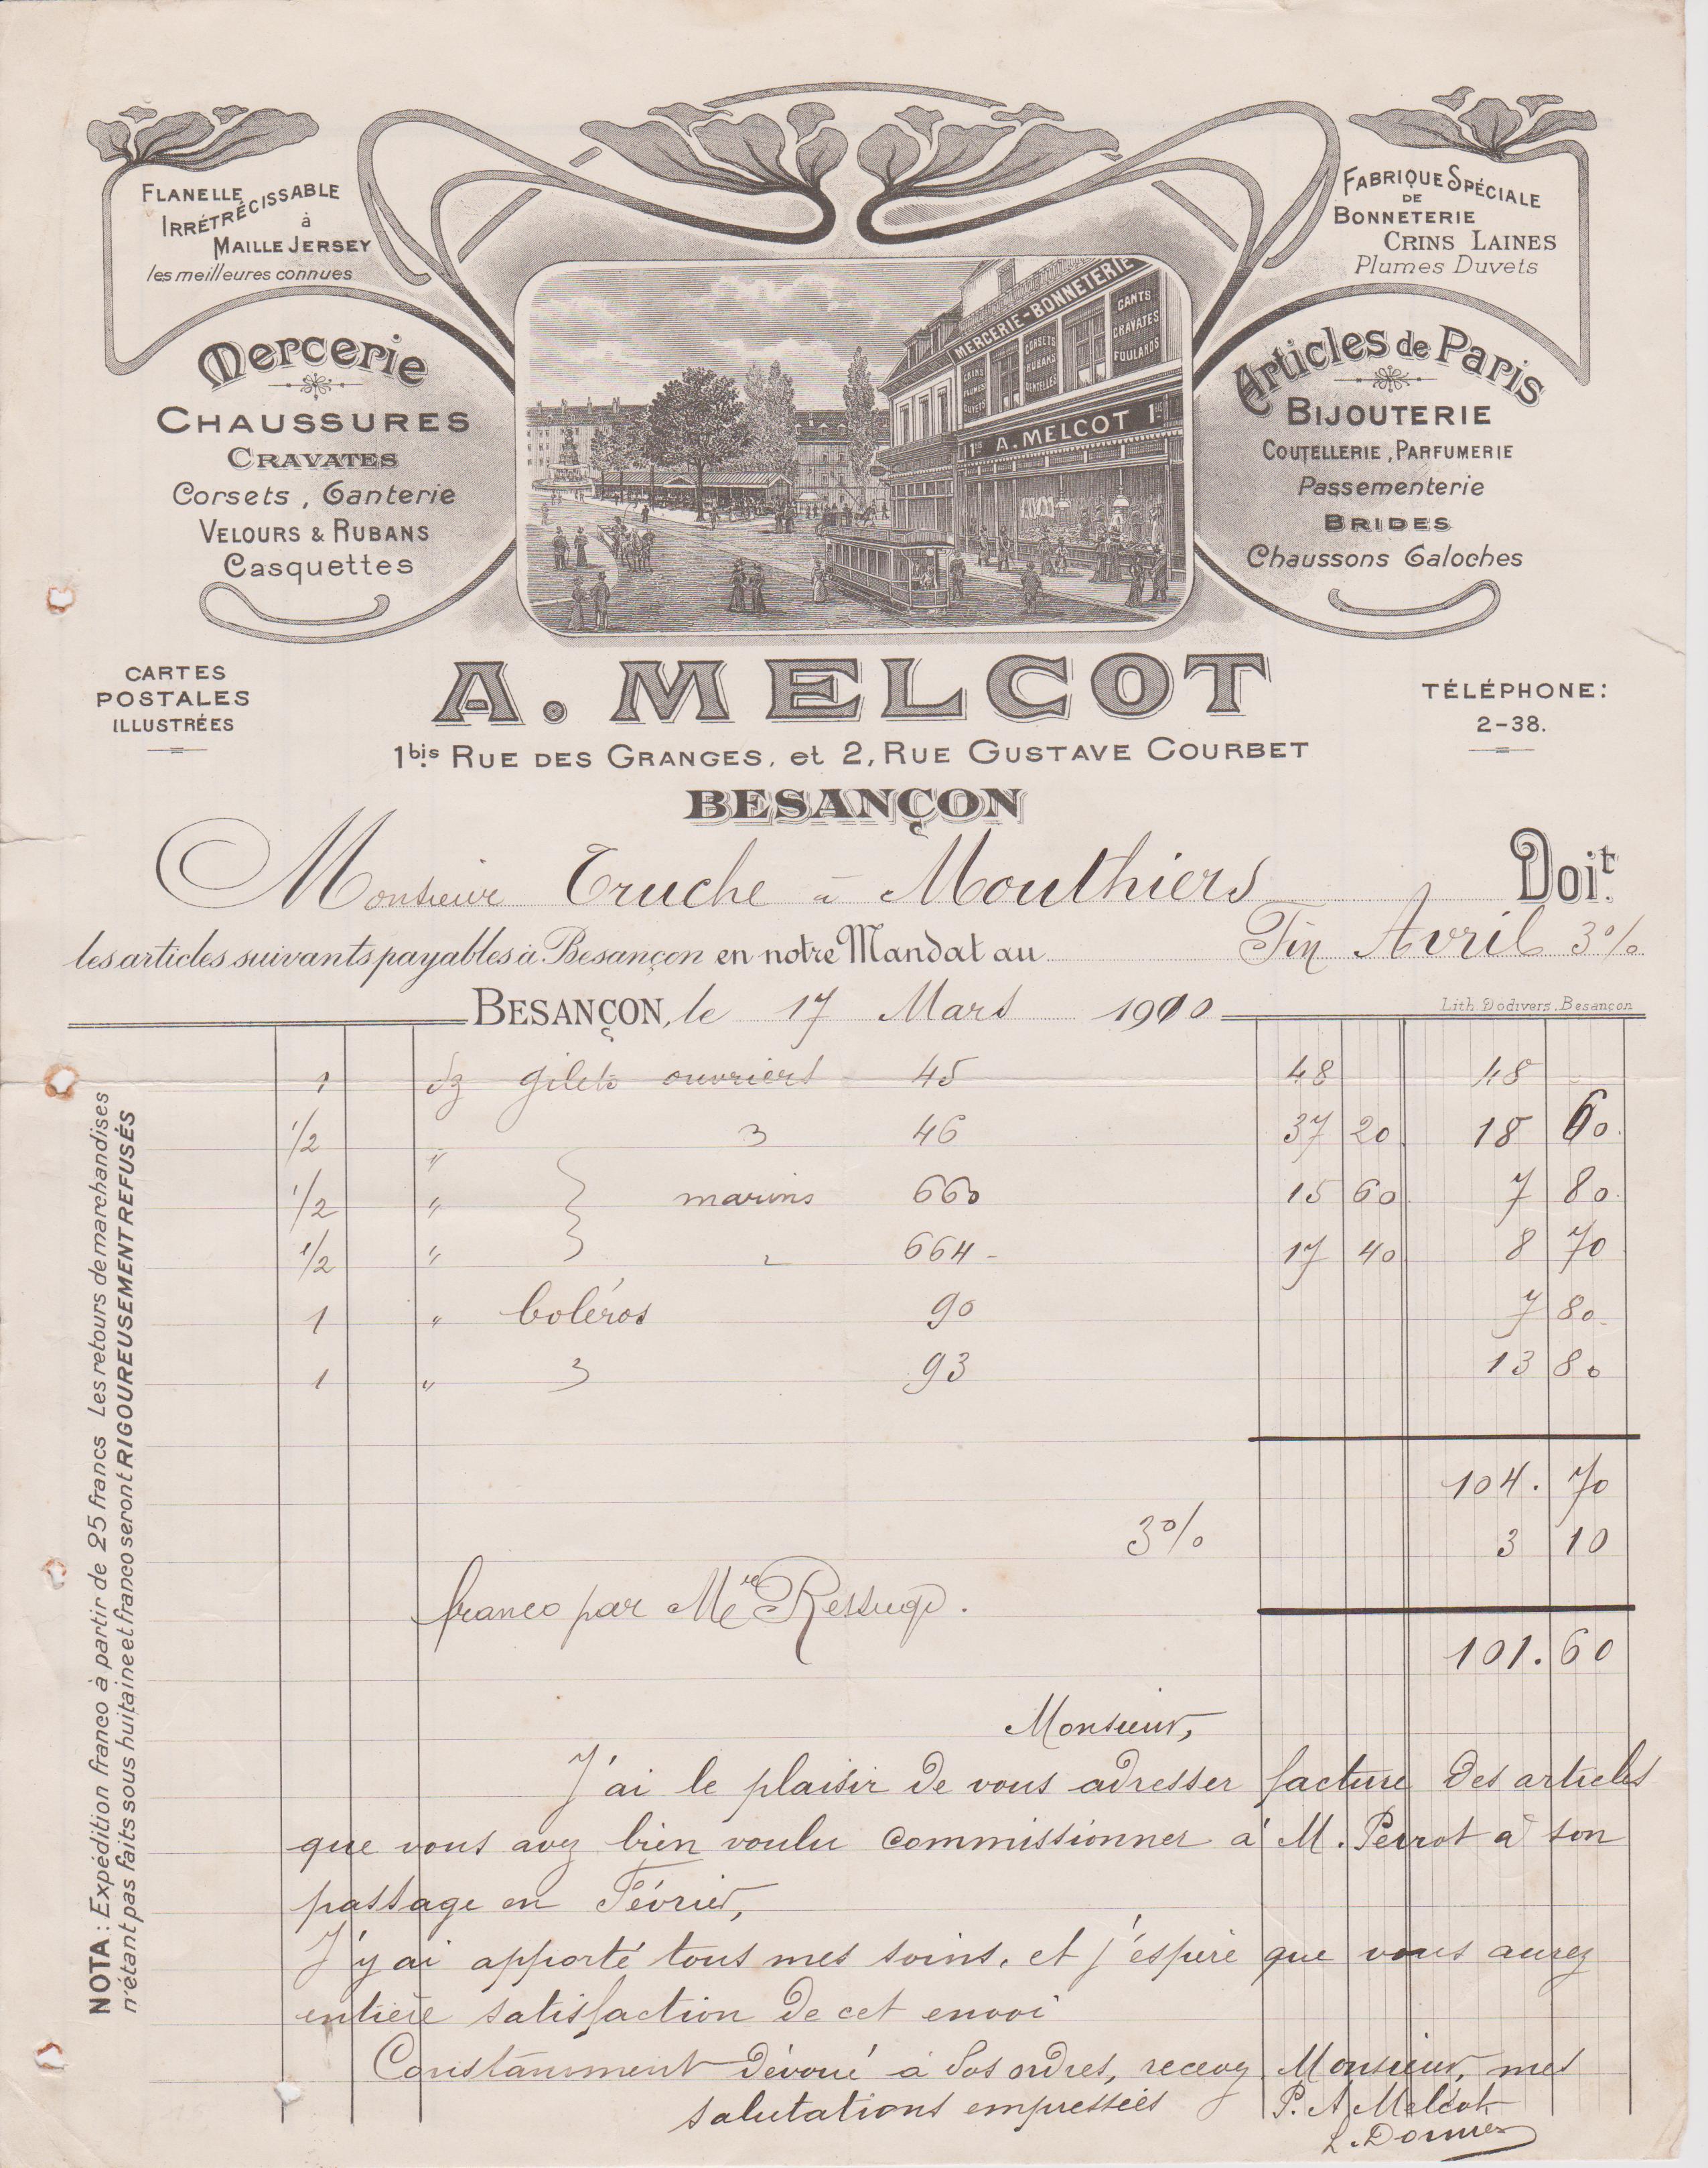 FLANELLE
IRRÉTRÉCISSABLE
à
MAILLE JERSEY
les meilleures connues
FABRIQUE SPÉCIALE
DE
BONNETERIE
CRINS LAINES
Plumes Duvets
Mercerie
CHAUSSURES
CRAVATES
Corsets, Ganterie
VELOURS & RUBANS
Casquettes
MERCERIE-BONNETERIE
CRINS
PLUMES
DUVETS
CORSETS
RUBANS
DENTELLES
GANTS
CRAVATES
FOULARDS
1bis A. MELCOT 1bis
Articles de Paris
BIJOUTERIE
COUTELLERIE, PARFUMERIE
Passementerie
BRIDES
Chaussons Galoches
CARTES
POSTALES
ILLUSTRÉES
A. MELCOT
TÉLÉPHONE:
2-38.
1bis RUE DES GRANGES, et 2, RUE GUSTAVE COURBET
BESANÇON
Monsieur Truche à Mouthiers Doit
les articles suivants payables à Besançon en notre Mandat au Fin Avril 3%
BESANÇON, le 17 Mars 1910
Lith. Dodivers, Besançon
1 dz gilets ouvriers 45 48 48
1/2 " 46 37 20 18 60
1/2 " marins 660 15 60 7 80
1/2 " 664 - 17 40 8 70
1 " boléros 90 7 80
1 " 93 13 80
104. 70
3% 3 10
franco par
101. 60
Monsieur,
J'ai le plaisir de vous adresser facture des articles
que vous avez bien voulu commissionner à M. Perrot à son
passage en Février,
J'y ai apporté tous mes soins, et j'espère que vous aurez
entière satisfaction de cet envoi
Constamment dévoué à vos ordres, recevez Monsieur, mes
salutations empressées P. A Melcot
NOTA: Expédition franco à partir de 25 francs Les retours de marchandises
n'étant pas faits sous huitaine et franco seront RIGOUREUSEMENT REFUSÉS